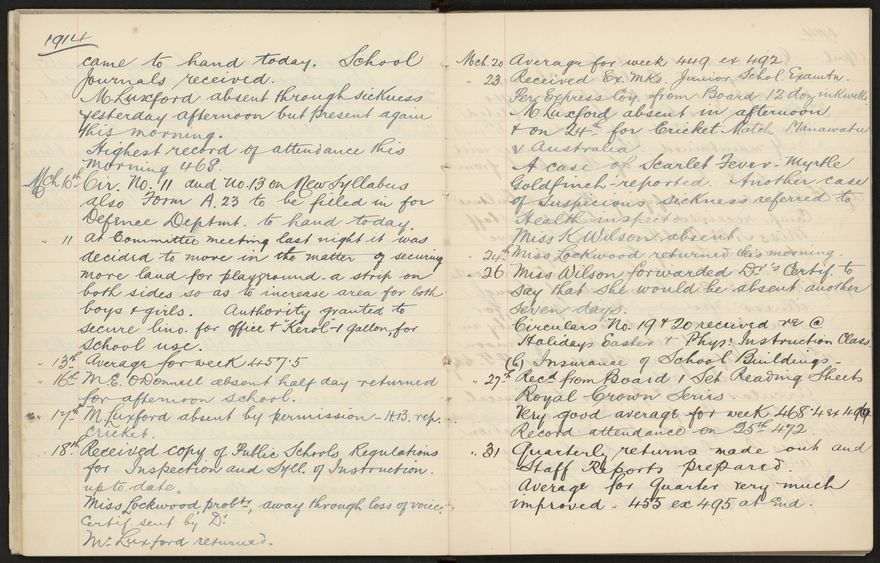 1914
came to hand today. School
Journals received.
M. Luxford absent through sickness
yesterday afternoon but present again
this morning.
Highest record of attendance this
morning 468.
Mch. 10th Cir. No. 11 and No. 13 on New Syllabus
also Form A. 23 to be filled in for
Defence Deptmt. to hand today.
" 11 At Committee meeting last night it was
decided to move in the matter of securing
more land for playground - a strip on
both sides so as to increase area for both
boys & girls. Authority granted to
secure lino. for office & "Kerol" - 1 gallon, for
school use.
" 13th Average for week 457.5
" 16th M. E. O'Donnell absent half day returned
for afternoon school.
" 17th M. Luxford absent by permission - H.B. rep.
Cricket.
18th Received copy of Public Schools Regulations
for Inspection and Syll. of Instruction.
up to date.
Miss Lockwood, probtr, away through loss of voice.
Certif. sent by Dr.
Mr. Luxford returned.
Mch. 20 Average for week 449 ex 492
" 23 Received Ex. Mks. Junior Schol. Examtn.
Per Express Coy. from Board 12 doz inkwells
M Luxford absent in afternoon
& on 24th for Cricket Match Manawatu
v Australia
A case of Scarlet Fever - Myrtle
Goldfinch - reported. Another case
of suspicious sickness referred to
Health inspector.
Miss K Wilson absent.
" 24th Miss Lockwood returned this morning.
" 26 Miss Wilson forwarded Dr's Certif. to
say that she would be absent another
seven days.
Circulars No. 19 & 20 received re (a)
Holidays Easter & Phys: Instruction Class
(b) Insurance of School Buildings -
" 27th Recd. from Board 1 Set Reading Sheets
Royal Crown Series.
Very good average for week 468.4 ex 499
Record attendance on 25th 472.
" 31 Quarterly returns made out and
Staff Reports prepared.
Average for Quarter very much
improved - 455 ex 495 at End.